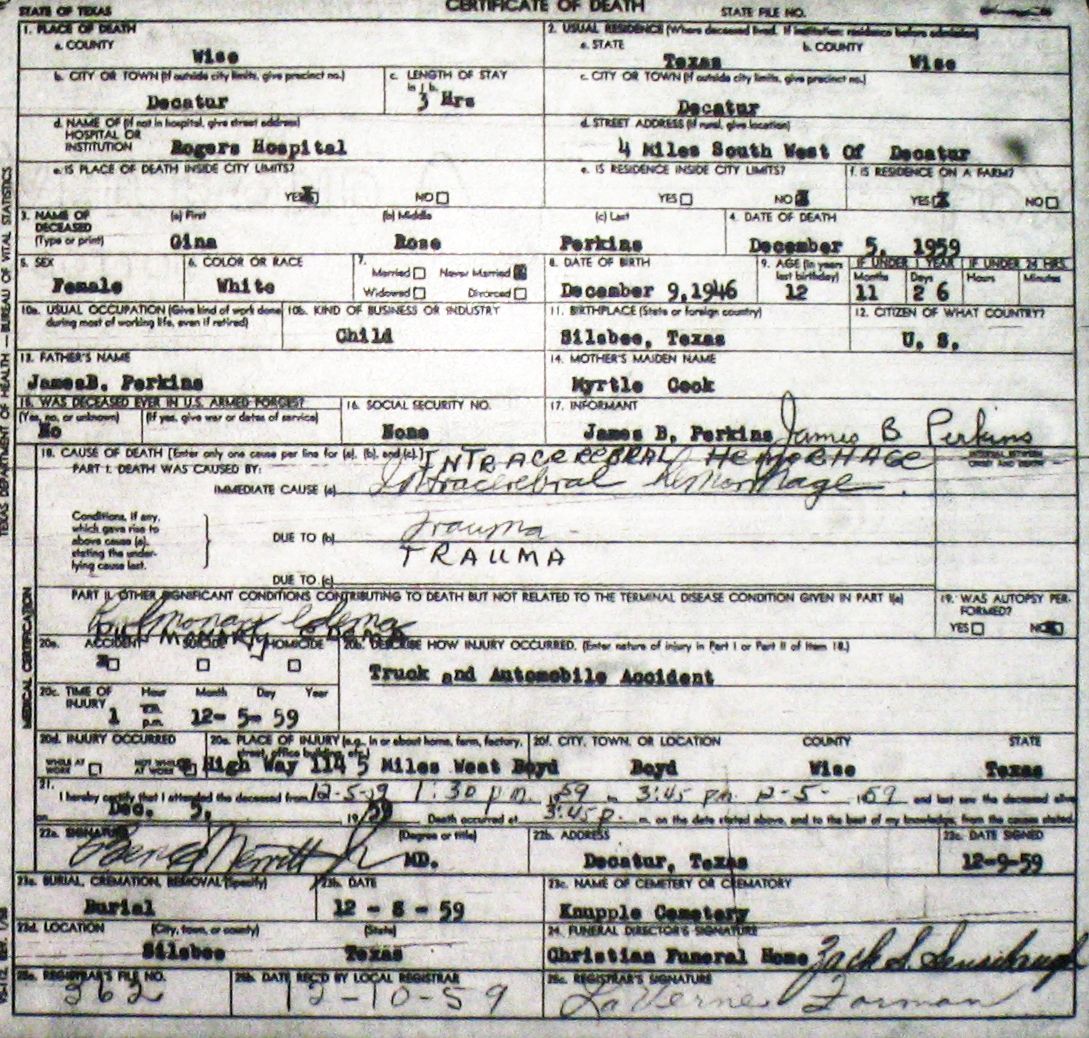 CERTIFICATE OF DEATH
STATE OF TEXAS STATE FILE NO.
1. PLACE OF DEATH 2. USUAL RESIDENCE (Where deceased lived. If institution: residence before admission)
a. COUNTY a. STATE b. COUNTY
Wise Texas Wise
b. CITY OR TOWN (If outside city limits, give precinct no.) c. LENGTH OF STAY c. CITY OR TOWN (If outside city limits, give precinct no.)
in 1 b.
Decatur 3 Hrs Decatur
d. NAME OF (If not in hospital, give street address) d. STREET ADDRESS (If rural, give location)
HOSPITAL OR
INSTITUTION Rogers Hospital 4 Miles South West Of Decatur
e. IS PLACE OF DEATH INSIDE CITY LIMITS? e. IS RESIDENCE INSIDE CITY LIMITS? f. IS RESIDENCE ON A FARM?
YES X NO YES NO X YES X NO
3. NAME OF (a) First (b) Middle (c) Last 4. DATE OF DEATH
DECEASED
(Type or print) Gina Rose Perkins December 5, 1959
5. SEX 6. COLOR OR RACE 7. Married Never Married X 8. DATE OF BIRTH 9. AGE (In years last birthday) IF UNDER 1 YEAR IF UNDER 24 HRS.
Months Days Hours Minutes
Female White Widowed Divorced December 9, 1946 12 11 26
10a. USUAL OCCUPATION (Give kind of work done 10b. KIND OF BUSINESS OR INDUSTRY 11. BIRTHPLACE (State or foreign country) 12. CITIZEN OF WHAT COUNTRY?
during most of working life, even if retired)
Child Silsbee, Texas U. S.
13. FATHER'S NAME 14. MOTHER'S MAIDEN NAME
JamesB. Perkins Myrtle Cook
15. WAS DECEASED EVER IN U.S. ARMED FORCES? 16. SOCIAL SECURITY NO. 17. INFORMANT
(Yes, no, or unknown) (If yes, give war or dates of service)
No None James B. Perkins James B Perkins
18. CAUSE OF DEATH [Enter only one cause per line for (a), (b), and (c).] INTRACEREBRAL HEMORHAGE INTERVAL BETWEEN
ONSET AND DEATH
PART I. DEATH WAS CAUSED BY:
IMMEDIATE CAUSE (a) Intracerebral hemorrhage.
Conditions, if any,
which gave rise to
above cause (a),
stating the under-
lying cause last.
DUE TO (b) Trauma
TRAUMA
DUE TO (c)
PART II. OTHER SIGNIFICANT CONDITIONS CONTRIBUTING TO DEATH BUT NOT RELATED TO THE TERMINAL DISEASE CONDITION GIVEN IN PART I(a) 19. WAS AUTOPSY PER-
FORMED?
Pulmonary edema YES NO X
PULMONARY EDEMA
20a. ACCIDENT SUICIDE HOMICIDE 20b. DESCRIBE HOW INJURY OCCURRED. (Enter nature of injury in Part I or Part II of Item 18.)
X
Truck and Automobile Accident
20c. TIME OF Hour Month Day Year
INJURY 1 a.m. p.m. 12- 5- 59
20d. INJURY OCCURRED 20e. PLACE OF INJURY (e.g., in or about home, farm, factory, 20f. CITY, TOWN, OR LOCATION COUNTY STATE
street, office building, etc.)
WHILE AT WORK NOT WHILE AT WORK High Way 114 5 Miles West Boyd Boyd Wise Texas
21. I hereby certify that I attended the deceased from 12-5-59 1:30 p.m. 1959 to 3:45 p.m. 12-5- 1959 and last saw the deceased alive
on Dec. 5, 1959 Death occurred at 3:45 p. m. on the date stated above, and to the best of my knowledge, from the causes stated.
22a. SIGNATURE (Degree or title) 22b. ADDRESS 22c. DATE SIGNED
Merritt Jr MD. Decatur, Texas 12-9-59
23a. BURIAL, CREMATION, REMOVAL (Specify) 23b. DATE 23c. NAME OF CEMETERY OR CREMATORY
Burial 12 - 8 - 59 Knupple Cemetery
23d. LOCATION (City, town, or county) (State) 24. FUNERAL DIRECTOR'S SIGNATURE
Silsbee Texas Christian Funeral Home Zack S.
25a. REGISTRAR'S FILE NO. 25b. DATE REC'D BY LOCAL REGISTRAR 25c. REGISTRAR'S SIGNATURE
362 12-10-59 LaVerne Forman
TEXAS DEPARTMENT OF HEALTH — BUREAU OF VITAL STATISTICS
MEDICAL CERTIFICATION
VS-112 REV. 1/58